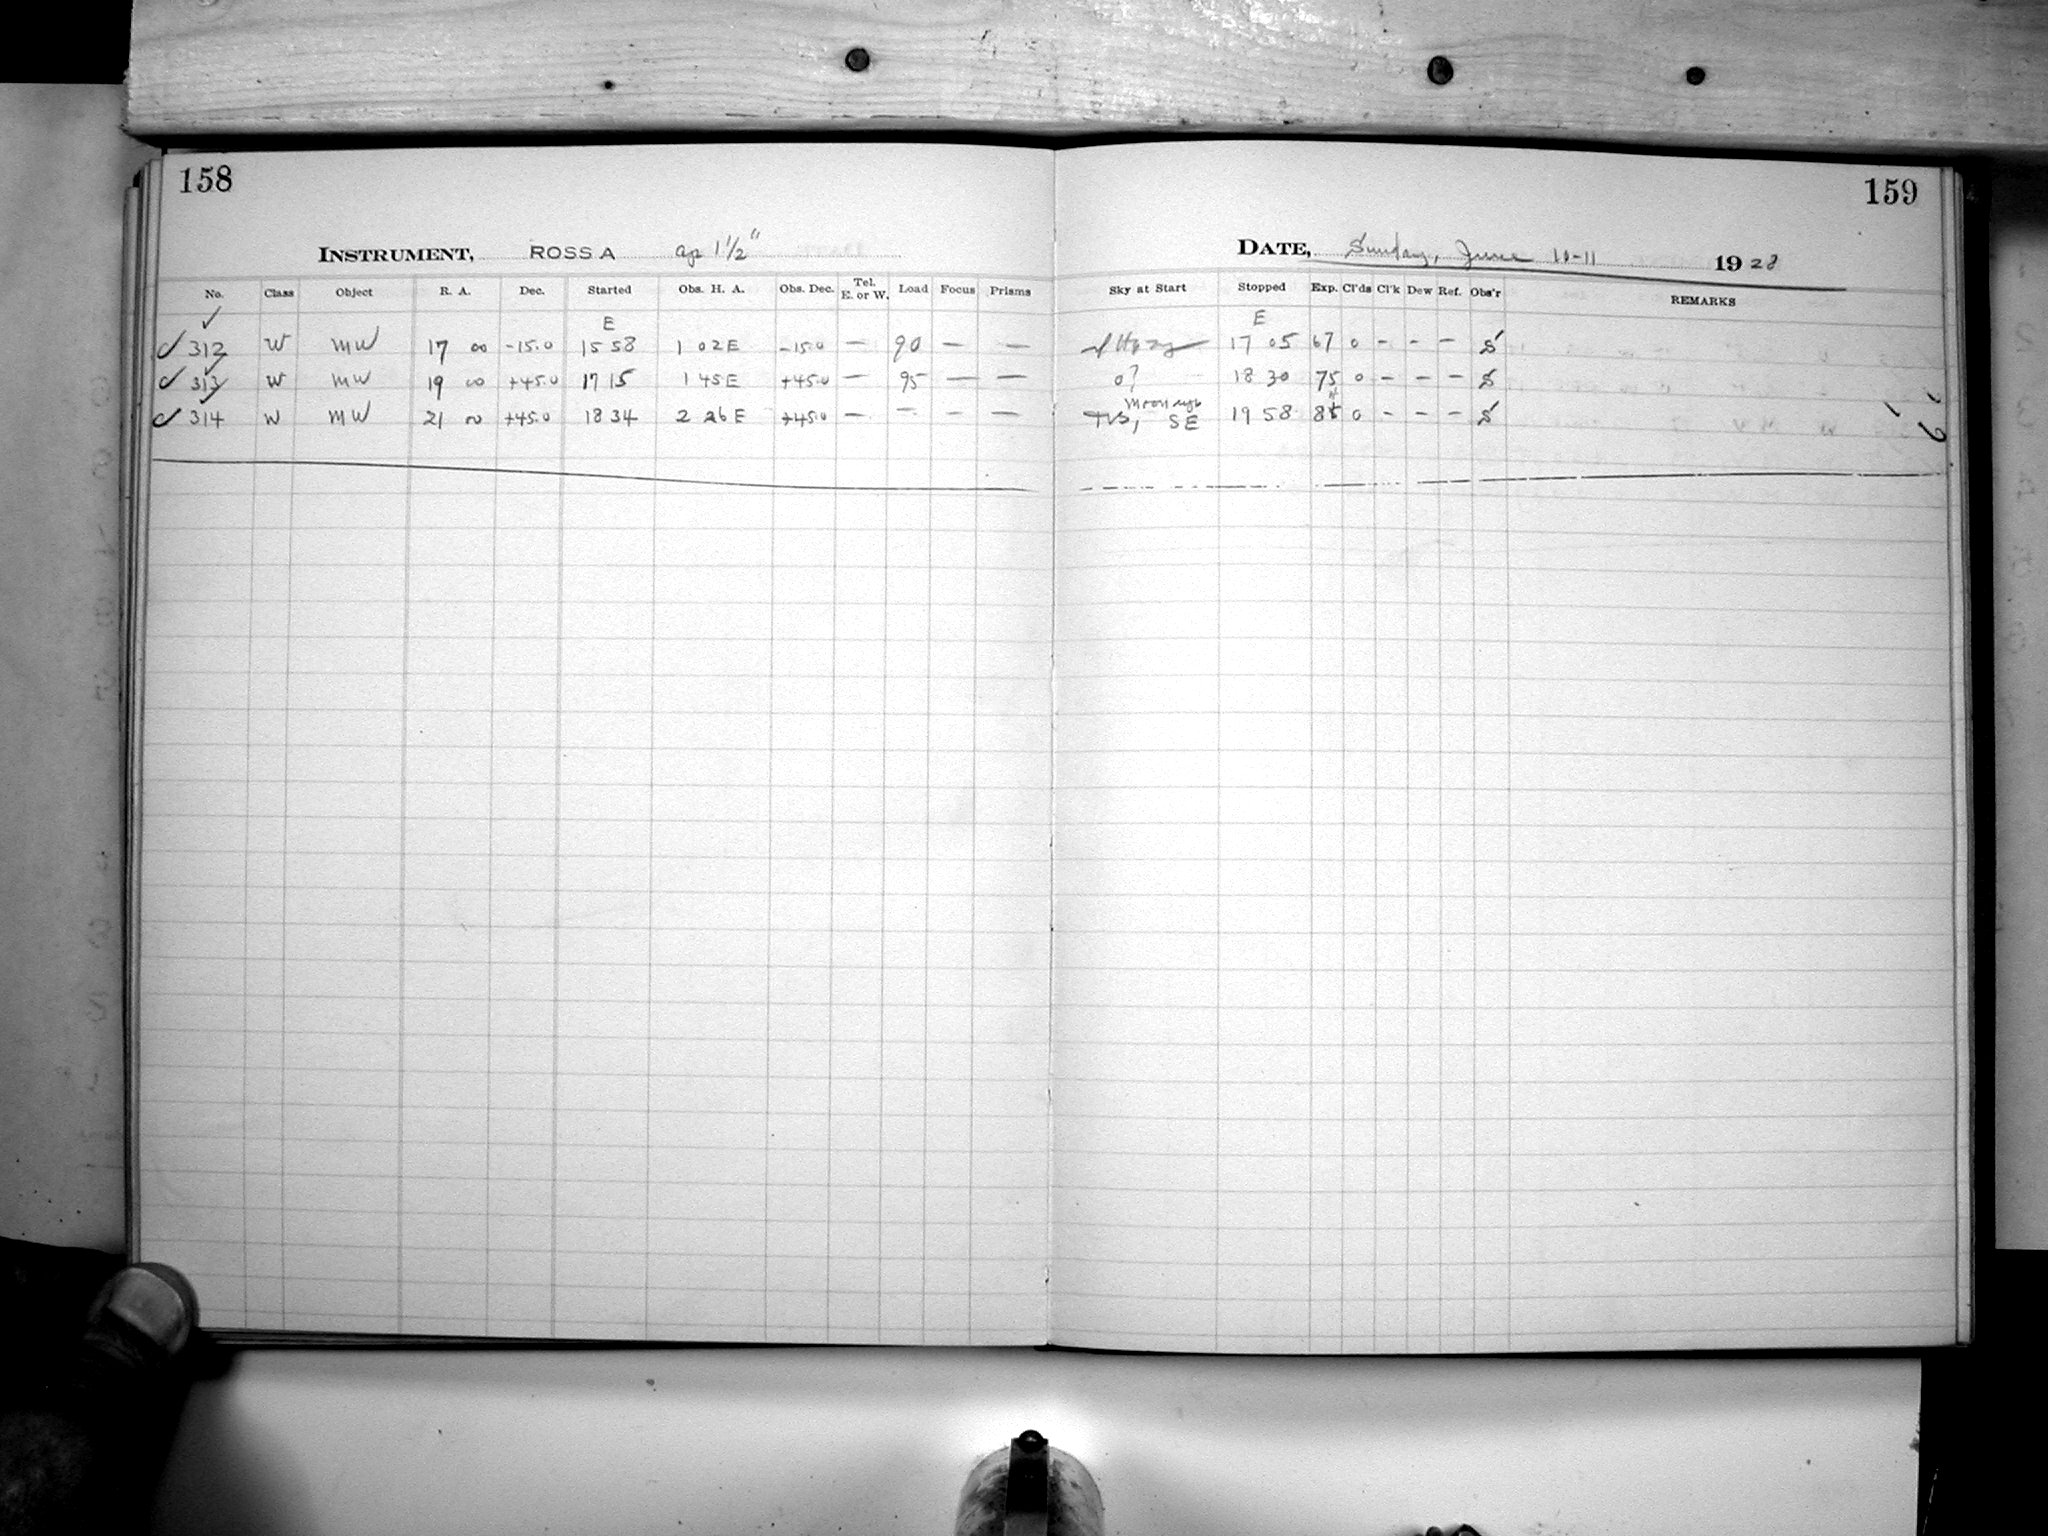 158
INSTRUMENT, ROSS A ap 1½"
No. Class Object R. A. Dec. Started Obs. H. A. Obs. Dec. Tel. E. or W. Load Focus Prisms
E
✓ 312 W MW 17 00 -15.0 15 58 1 02 E -15.0 — 90 — —
✓ 313 W MW 19 00 +45.0 17 15 1 45 E +45.0 — 95 — —
✓ 314 W MW 21 00 +45.0 18 34 2 26 E +45.0 — — — —
159
DATE, Sunday, June 10-11 1928
Sky at Start Stopped Exp. Cl'ds Cl'k Dew Ref. Obs'r REMARKS
E
Hazy 17 05 67 0 - - - S
0? 18 30 75 0 - - - S
Moon SE 19 58 84 0 - - - S